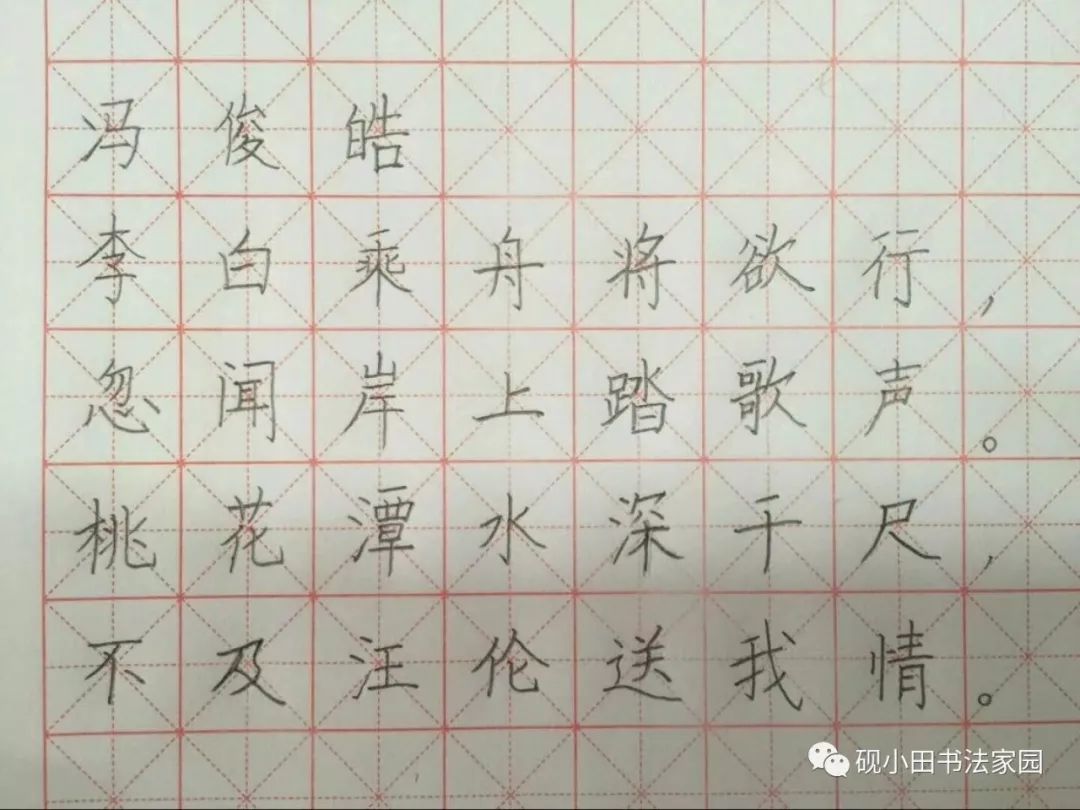 冯俊皓
李白乘舟将欲行，
忽闻岸上踏歌声。
桃花潭水深千尺，
不及汪伦送我情。
砚小田书法家园